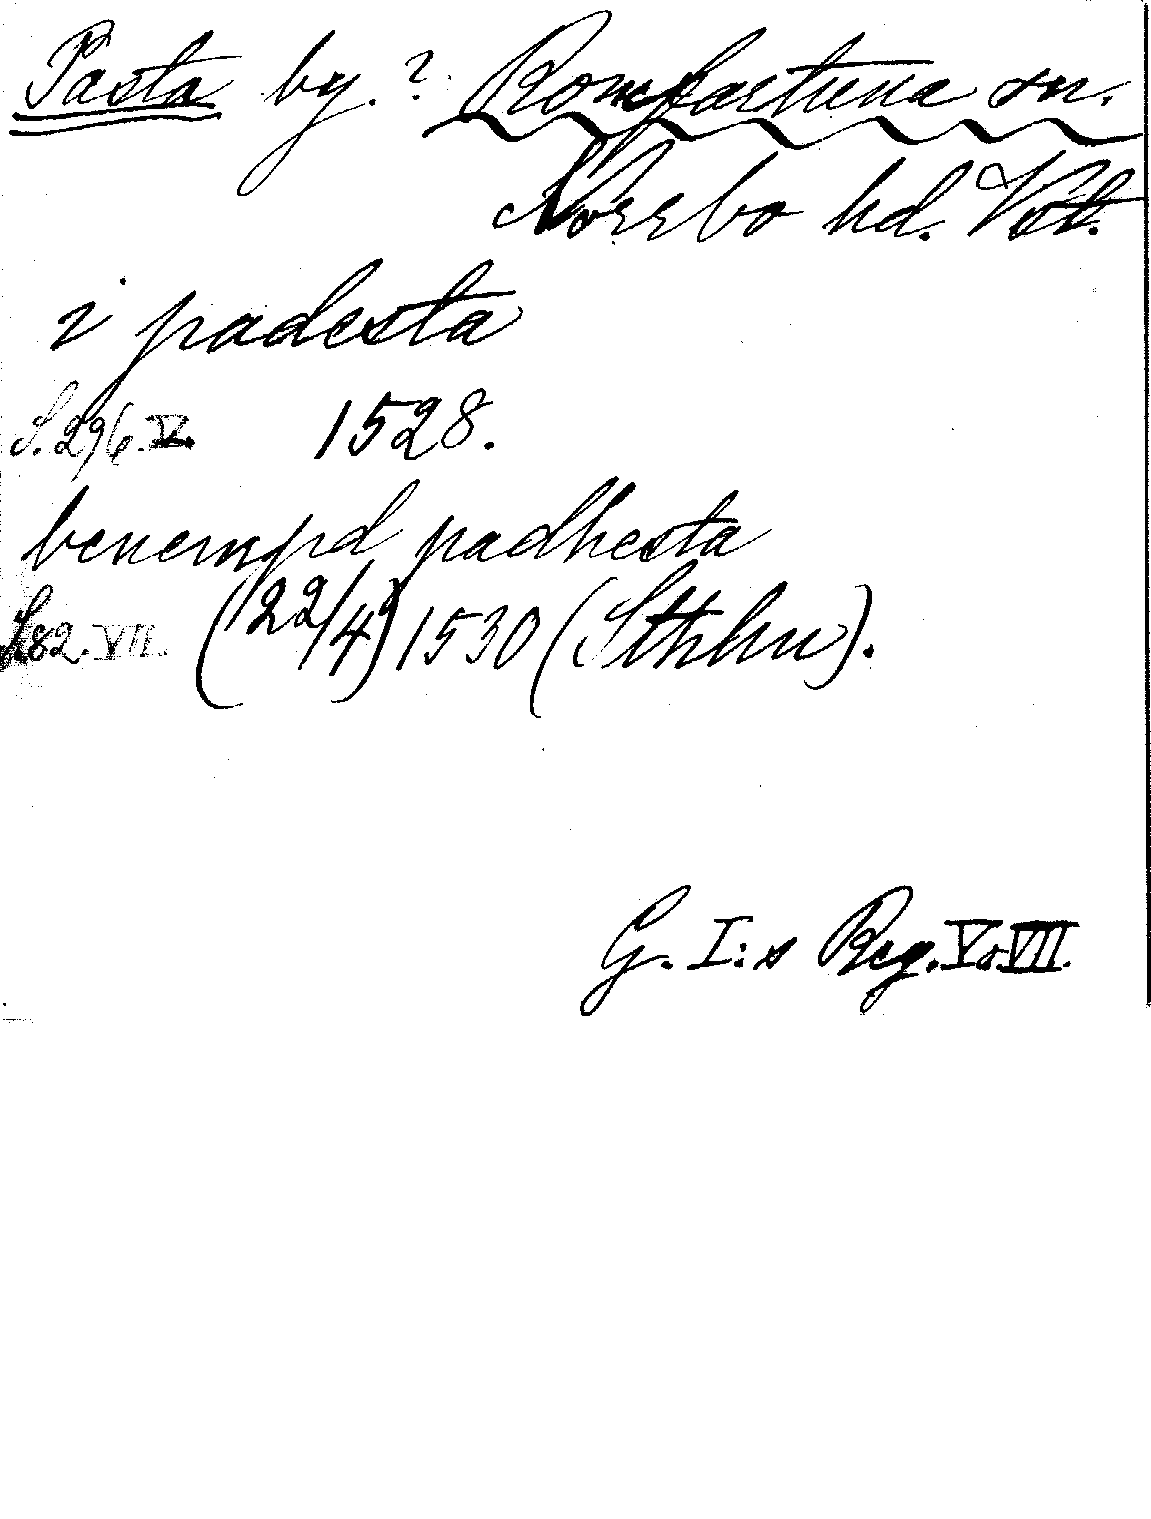 Pasta by.? Romfartuna sn.
Norrbo hd. Vstl.
i padesta
S. 296. V. 1528.
benempd padhesta
S. 82. VII. (22/4) 1530 (Sthlm).
G. I:s Reg. V o. VII.